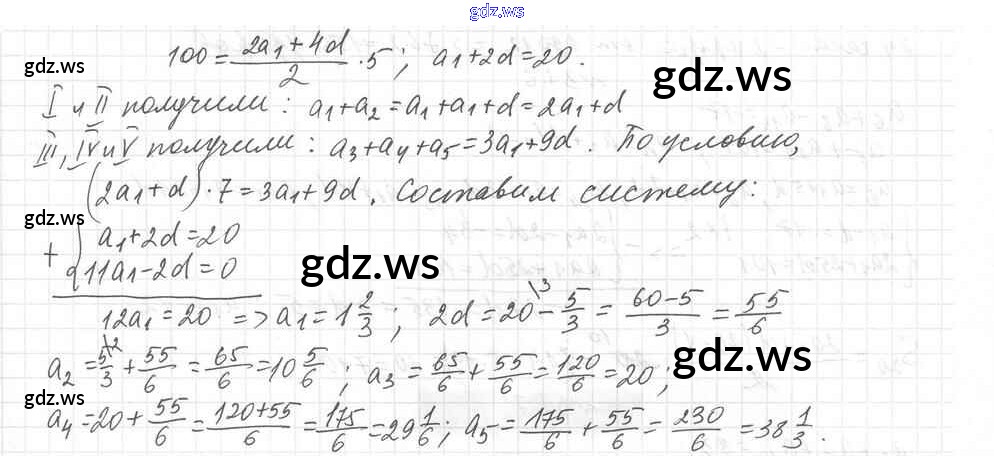 gdz.ws
100 = (2a₁ + 4d)/2 · 5; a₁ + 2d = 20.
gdz.ws
gdz.ws
I и II получили: a₁ + a₂ = a₁ + a₁ + d = 2a₁ + d
III, IV и V получили: a₃ + a₄ + a₅ = 3a₁ + 9d. По условию,
(2a₁ + d) · 7 = 3a₁ + 9d. Составим систему:
gdz.ws
+ { a₁ + 2d = 20
11a₁ - 2d = 0
gdz.ws
12a₁ = 20 => a₁ = 1 2/3; 2d = 20\3 - 5/3 = (60 - 5)/3 = 55/6
gdz.ws
a₂ = 5/3\2 + 55/6 = 65/6 = 10 5/6; a₃ = 65/6 + 55/6 = 120/6 = 20;
gdz.ws
a₄ = 20 + 55/6 = (120 + 55)/6 = 175/6 = 29 1/6; a₅ = 175/6 + 55/6 = 230/6 = 38 1/3.